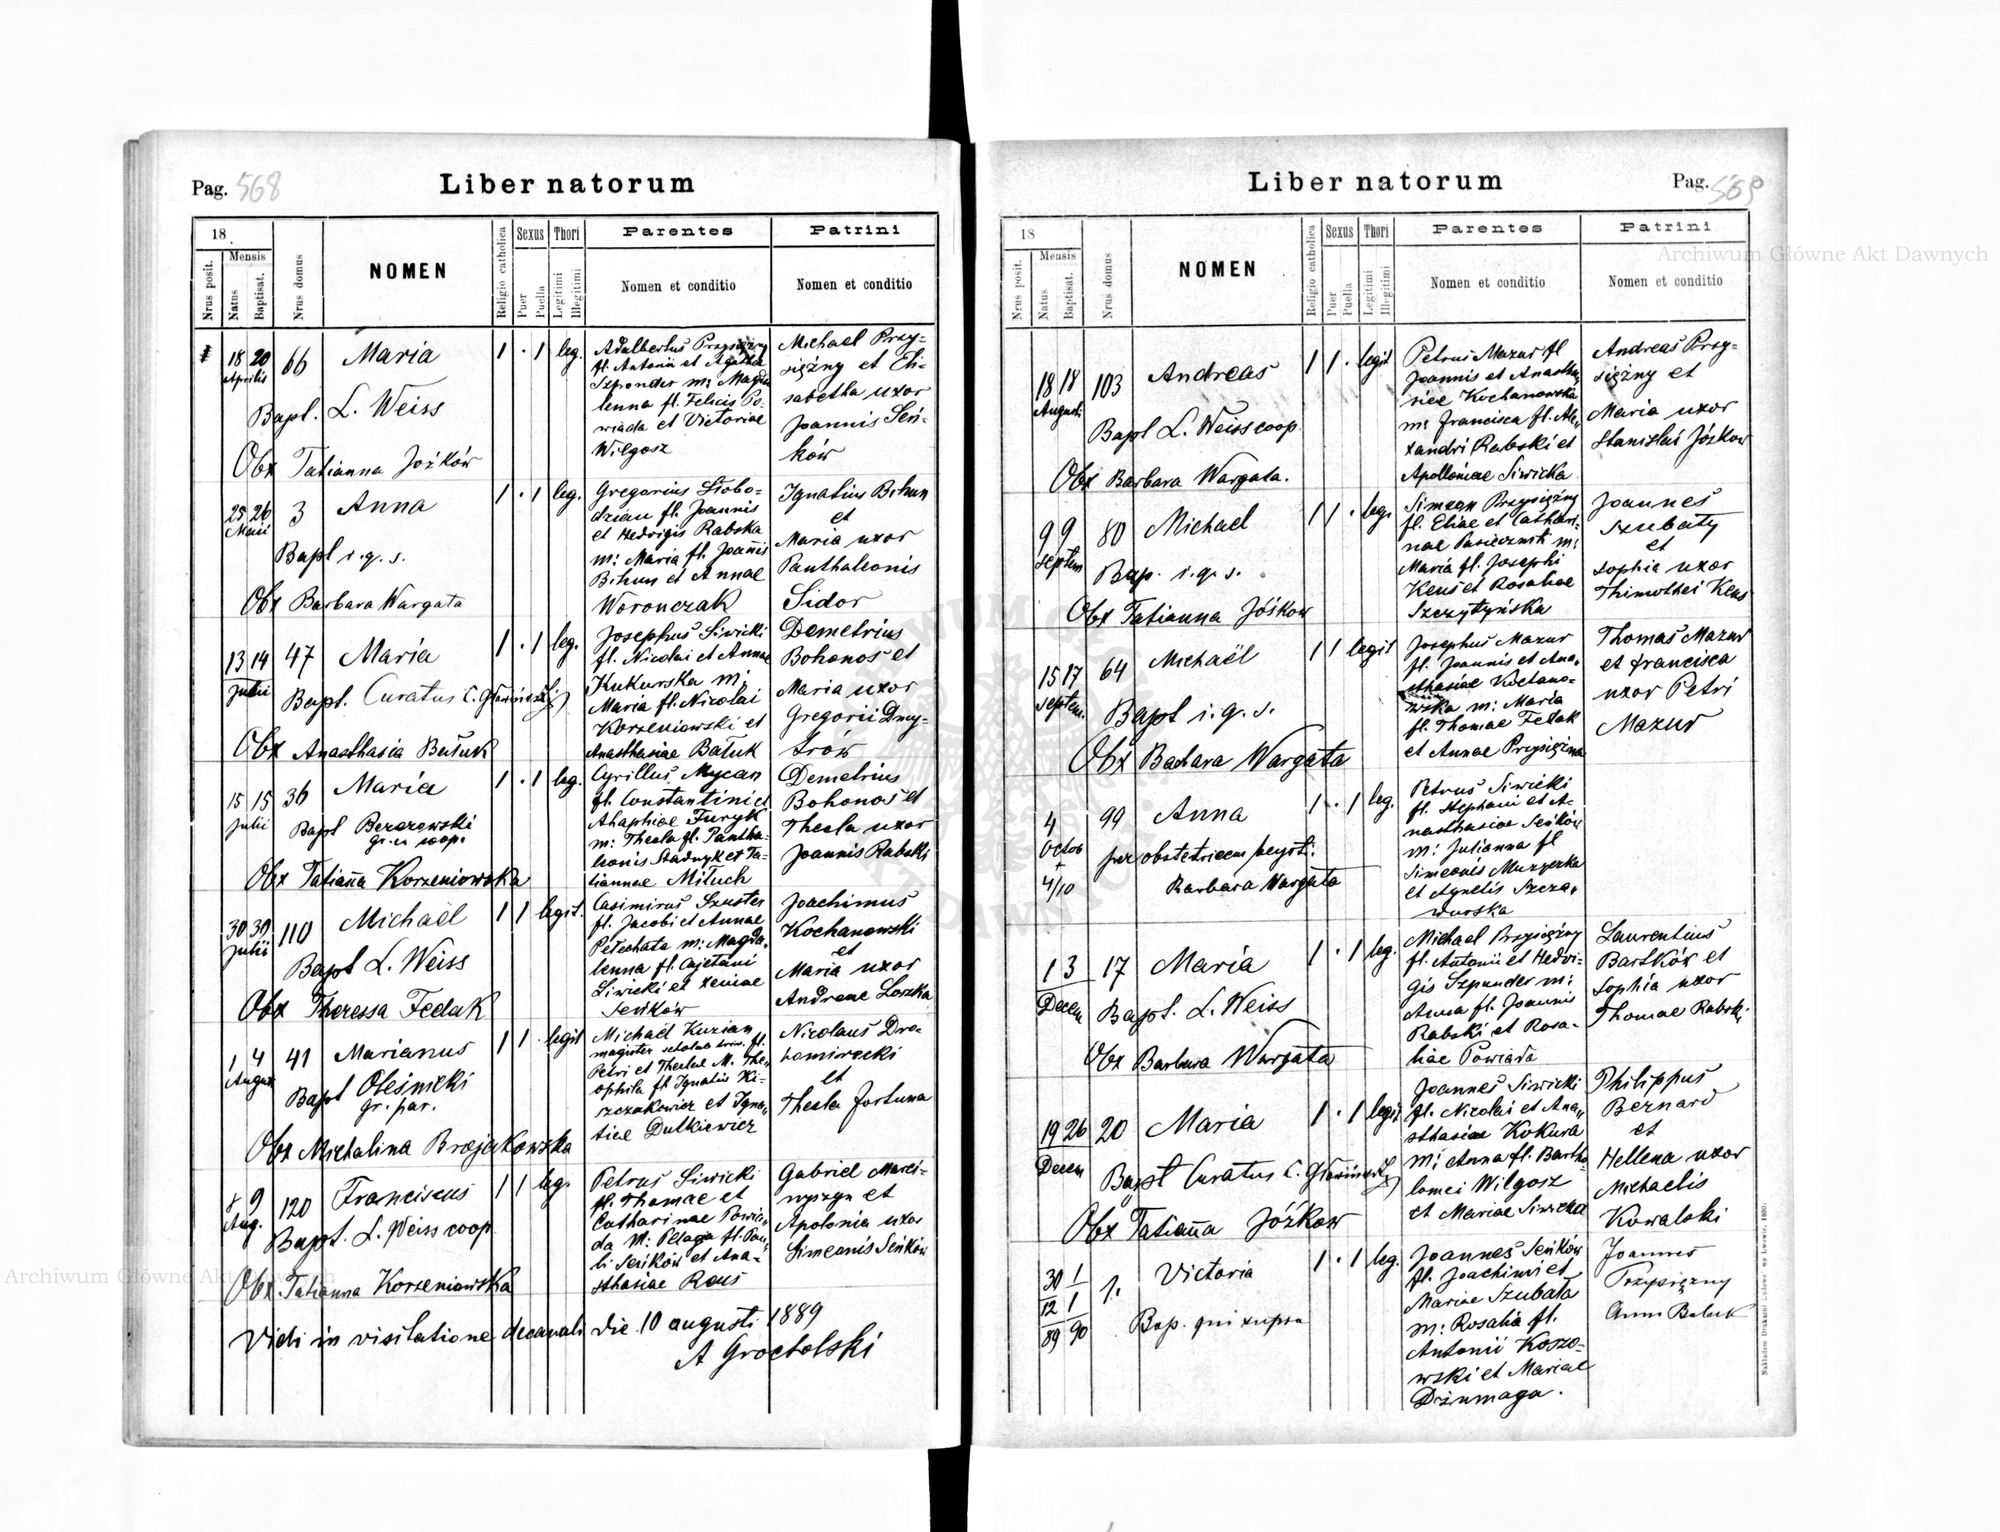 Pag. 568
Liber natorum
18
Nrus posit.
Mensis
Natus
Baptisat.
Nrus domus
NOMEN
Religio catholica
Sexus
Puer
Puella
Thori
Legitimi
Illegitimi
Parentes
Nomen et conditio
Patrini
Nomen et conditio
18 20 66 Maria 1 · 1 leg.
Aprilis
Bapt. L. Weiss
Obx Tatianna Jożków
Adalbertus Przysiężny
fl. Antonii et Agatha
Szponder m: Magda
lenna fl. Felicis Po-
wiada et Victoriae
Wilgosz
Michael Przy-
siężny et Eli-
sabetha uxor
Joannis Seń-
ków
25 26 3 Anna 1 · 1 leg.
Maii
Bapt i. q. s.
Obx Barbara Wargata
Gregorius Słobo-
dzian fl. Joannis
et Hedvigis Rabska
m: Maria fl. Joannis
Bihun et Annae
Woronczak
Ignatius Bihun
et
Maria uxor
Panthaleonis
Sidor
13 14 47 Maria 1 · 1 leg.
Julii
Bapt. Curatus
Obx Anasthasia Bałuk
Josephus Siwicki
fl. Nicolai et Annae
Kukurska m:
Maria fl. Nicolai
Korzeniowski et
Anasthasiae Bałuk
Demetrius
Bohonos et
Maria uxor
Gregorii Dmy-
trów
15 15 36 Maria 1 · 1 leg.
Julii
Bapt Berezowski
gr. c. coop.
Obx Tatianna Korzeniowska
Cyrillus Mycan
fl. Constantini et
Ahaphiae Furyk
m: Thecla fl. Pantha-
leonis Stadnyk et Ta-
tiannae Mituch
Demetrius
Bohonos et
Thecla uxor
Joannis Rabski
30 30 110 Michaël 1 1 legit.
Julii
Bapt L. Weiss
Obx Theressa Fedak
Casimirus Szuster
fl. Jacobi et Annae
Petechata m: Magda-
lenna fl. Cajetani
Siwicki et Xeniae
Seńków
Joachimus
Kochanowski
et
Maria uxor
Andreae Loszka
1 4 41 Marianus 1 1 · legit
August
Bapt Oleśnicki
gr. par.
Obx Michalina Brojakowska
Michaël Kuzian
magister scholae triv. fl.
Petri et Theclae M. The-
ophila fl Ignatii Ki-
szczakowicz et Igna-
tiae Dutkiewicz
Nicolaus Dro-
homirecki
et
Thecla Fortuna
8 9 120 Franciscus 1 1 leg.
Aug.
Bapt. L. Weiss coop
Obx. Tatianna Korzeniowska
Petrus Siwicki
fl. Thomae et
Catharinae Powia-
da M: Pelagia fl. Pau-
li Seńków et Ana-
sthasiae Reus
Gabriel Marci-
wyszyn et
Apolonia uxor
Simeonis Seńków
Vidi in visitatione decanali die 10 augusti 1889
A Grocholski
Pag. 569
Liber natorum
18
Nrus posit.
Mensis
Natus
Baptisat.
Nrus domus
NOMEN
Religio catholica
Sexus
Puer
Puella
Thori
Legitimi
Illegitimi
Parentes
Nomen et conditio
Patrini
Nomen et conditio
18 18 103 Andreas 1 1 · legit
Augusti
Bapt L. Weiss coop.
Obx Barbara Wargata.
Petrus Mazur fl
Joannis et Anastha-
siae Kochanowska
m: Francisca fl. Ale-
xandri Rabski et
Apolloniae Siwicka
Andreas Przy-
siężny et
Maria uxor
Stanislai Jóskow
9 9 80 Michael 1 1 · leg.
Septem
Bap. i. q. s.
Obx Tatianna Jóśkow
Simeon Przysiężny
fl. Eliae et Cathari-
nae Pasiecznik m:
Maria fl. Josephi
Keuś et Rosaliae
Szczytyńska
Joannes
Szubaty
et
Sophia uxor
Thimothei Keus
15 17 64 Michaël 1 1 legit
Septem.
Bapt i. q. s.
Obx Barbara Wargata
Josephus Mazur
fl. Joannis et Ana-
sthasiae Kochano-
wska m: Maria
fl. Thomae Fedak
et Annae Przysiężna
Thomas Mazur
et Francisca
uxor Petri
Mazur
4 99 Anna 1 · 1 leg.
Octob
+
4/10
per obstetricem
Barbara Wargata
Petrus Siwicki
fl. Stephani et A-
nasthasiae Seńków
m: Julianna fl
Simeonis Muzyczka
et Agnetis Szcza-
wurska
1 3 17 Maria 1 · 1 leg.
Decem
Bapt. L. Weiss
Obx Barbara Wargata
Michael Przysiężny
fl. Antonii et Hedvi-
gis Szpunder m:
Anna fl. Joannis
Rabski et Rosa-
liae Powiada
Laurentius
Bartków et
Sophia uxor
Thomae Rabski
19 26 20 Maria 1 · 1 legit
Decem
Bapt Curatus
Obx Tatianna Jóżkow
Joannes Siwicki
fl. Nicolai et Ana-
sthasiae Kokura
M: Anna fl. Bartho-
lomei Wilgosz
et Mariae Siwicka
Philippus
Bernard
et
Hellena uxor
Michaelis
Kowalski
30 1 1. Victoria 1 · 1 leg.
12 1
89 90
Bap. qui supra
Joannes Seńków
fl. Joachimi et
Mariae Szubata
m: Rosalia fl.
Antonii Koszo-
wski et Mariae
Dziumaga.
Joannes
Przysiężny
Anna Baluk
Nakładem Drukarni Ludowej we Lwowie. 1880.
Archiwum Główne Akt Dawnych
Archiwum Główne Akt Dawnych
ARCHIWUM GŁÓWNE AKT DAWNYCH